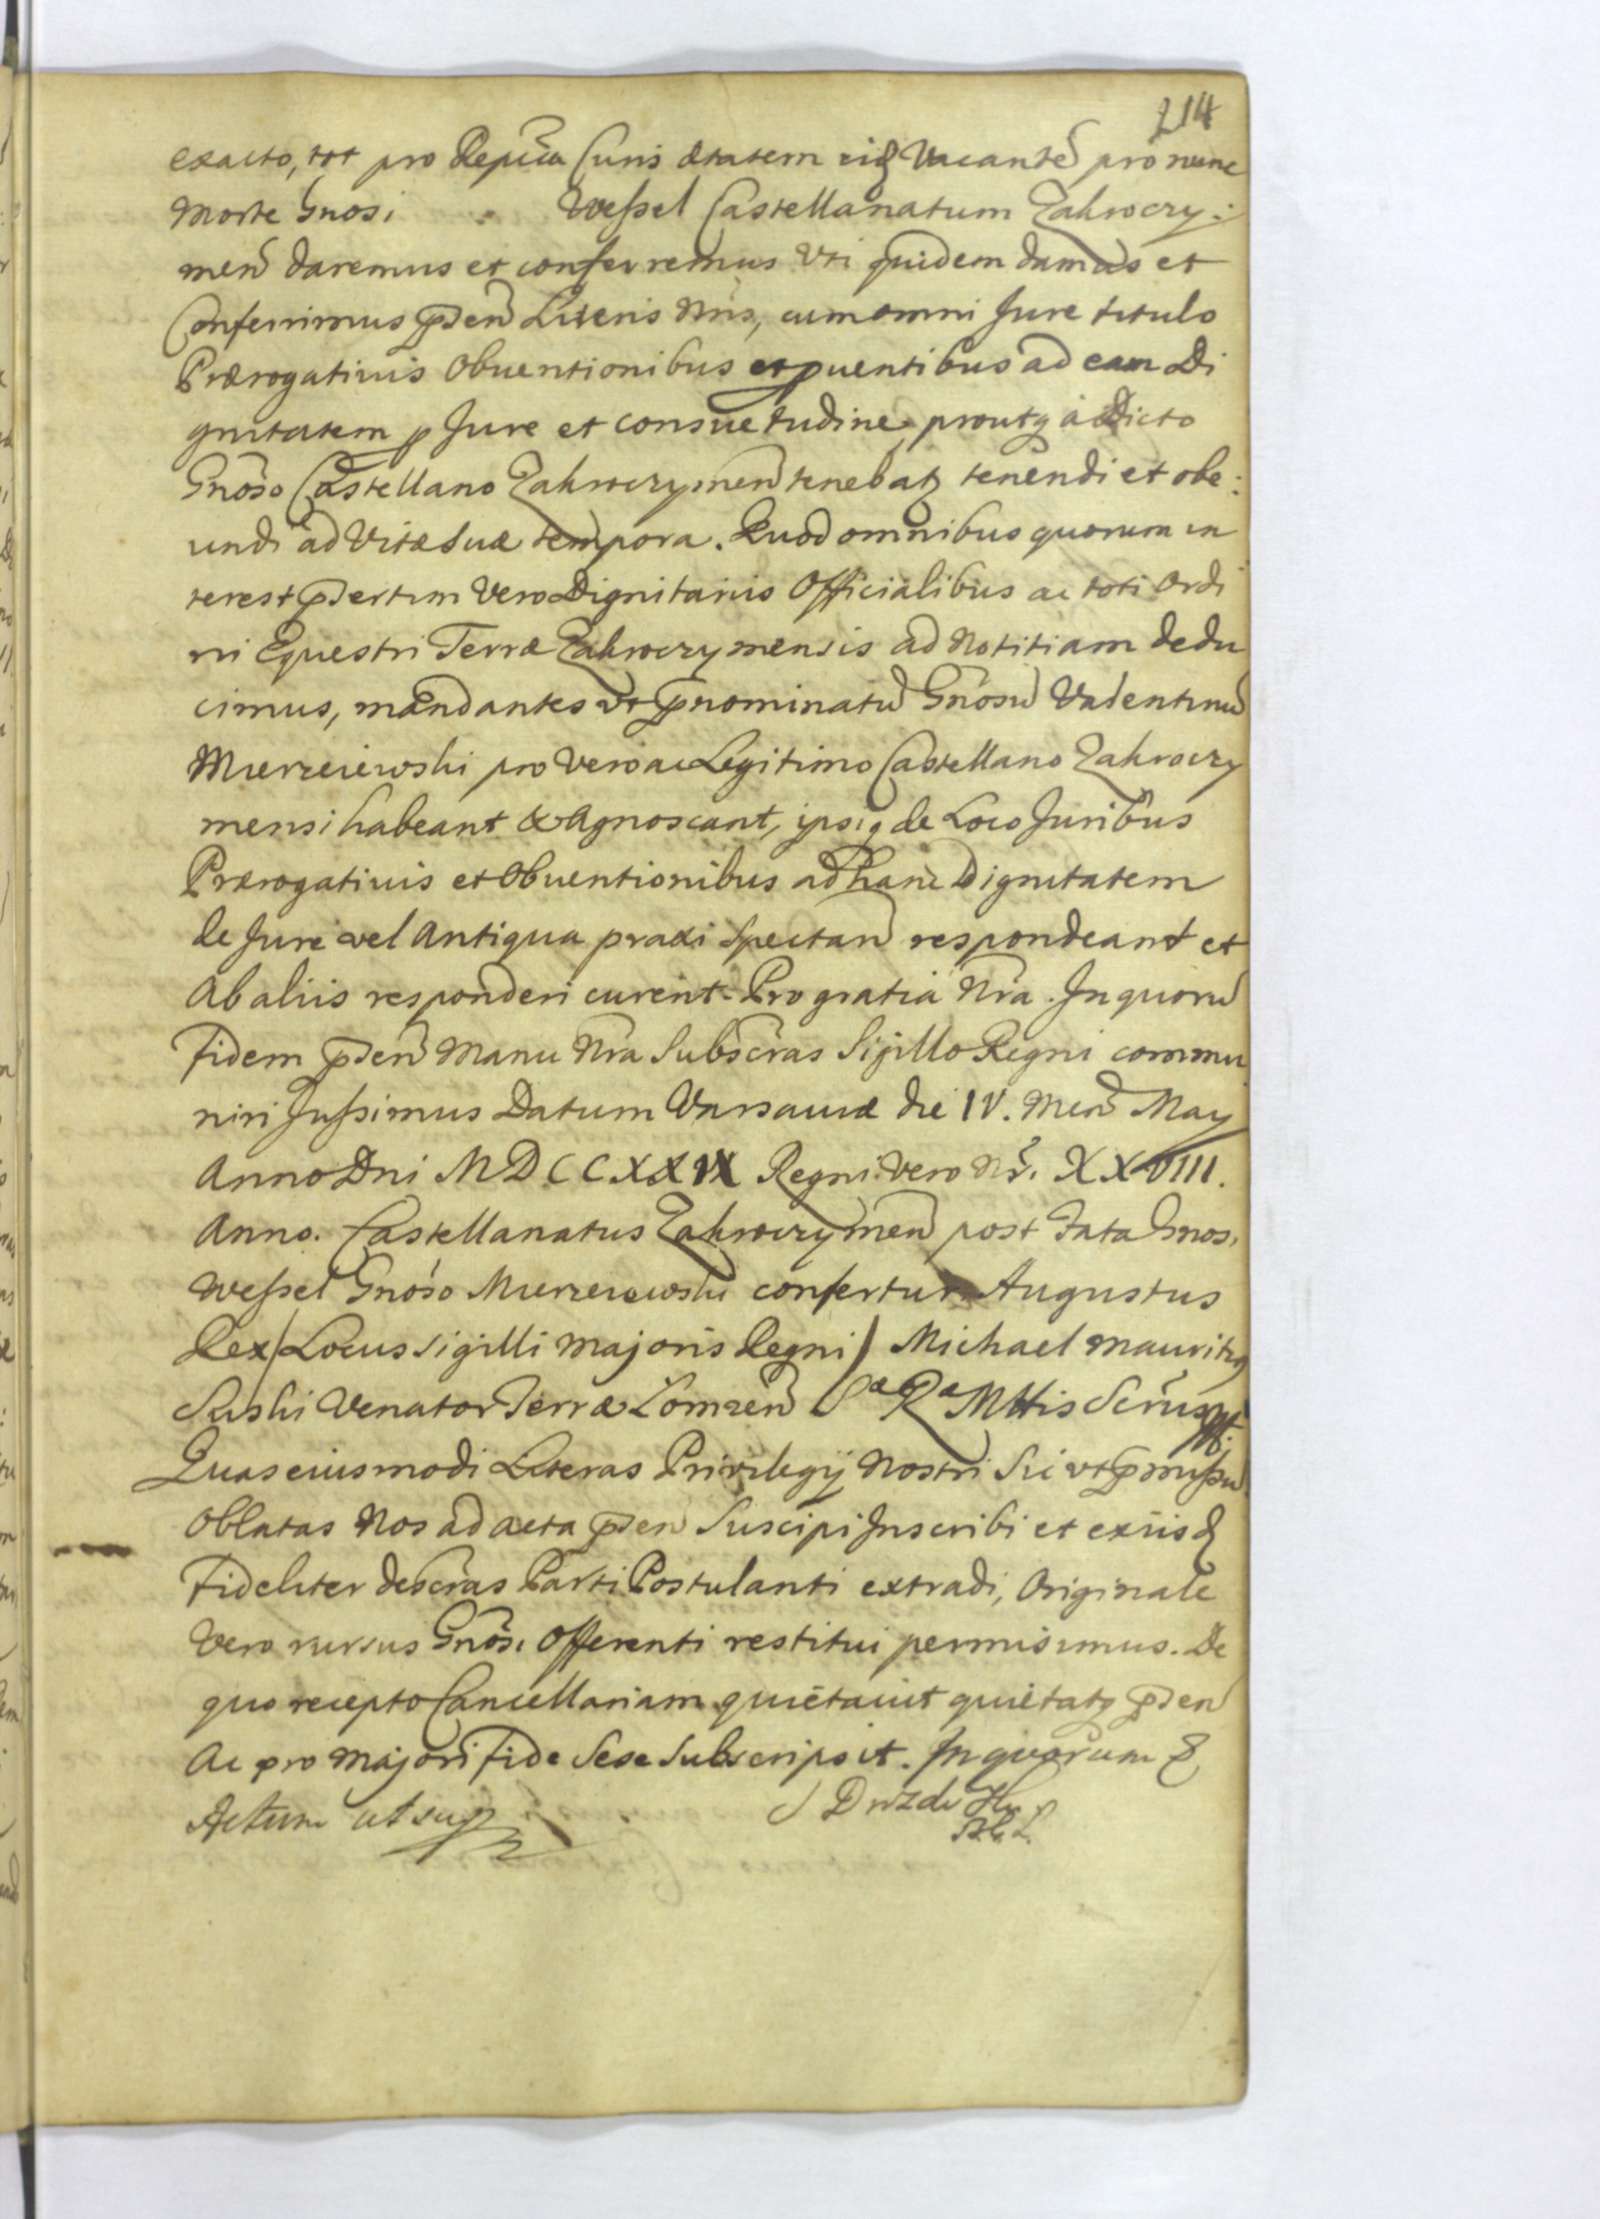 114
exacto, tot pro Repca Curis ætatem eidz Vacantē pro nunc
Morte Gnosi Weſsel Castellanatum Zakroczy:
men daremus et conferremus Uti quidem damus et
Conferrimus pden Literis Nris, cum omni Jure titulo
Prærogativis Obventionibus et pventibus ad eam Di
gnitatem p Jure et consuetudine, proutq a Dicto
Gnoso Castellano Zakroczymen tenebatz tenendi et obe:
undi ad Vitæ Suæ tempora. Quod omnibus quorum in
terest psertim Vero Dignitariis Officialibus ac toti Ordi
ni Equestri Terræ Zakroczymensis ad Notitiam dedu
cimus, mandantes ut pnominatū Gnosū Valentinū
Mierzeiewski pro Vero ac Legitimo Castellano Zakroczy
mensi habeant & Agnoscant, ipsiq de Loco Juribus
Prærogativis et Obventionibus ad hanc Dignitatem
de Jure vel Antiqua praxi Spectan respondeant et
Ab aliis responderi curent. Pro gratia Nra. In quorū
Fidem pden Manu Nra Subscras Sigillo Regni commu
niri Juſsimus Datum Varsaviæ die IV. Men May
Anno Dni MDCCXXIX Regni vero Nri XXVIII.
Anno. Castellanatus Zakroczymen post Fata Gnosi
Weſsel Gnoso Mierzeiewski confertur Augustus
Rex/ Locus Sigilli Majoris Regni/ Michael Mauritiq
Suski Venator Terræ Łomzen Sæ Ræ Mttis Scrius mp.
Quas eiusmodi Literas Privilegij Nostri Sic ut pmiſsū
Oblatas Nos ad acta pden Suscipi Inscribi et ex iisd
Fideliter descras Parti Postulanti extradi, Originale
Vero rursus Gnosi Offerenti restitui permisimus. De
quo recepto Cancellariam quietavit quietatq pden
Ac pro Majori Fide Sese Subscripsit. In quorum &
Actum ut sup